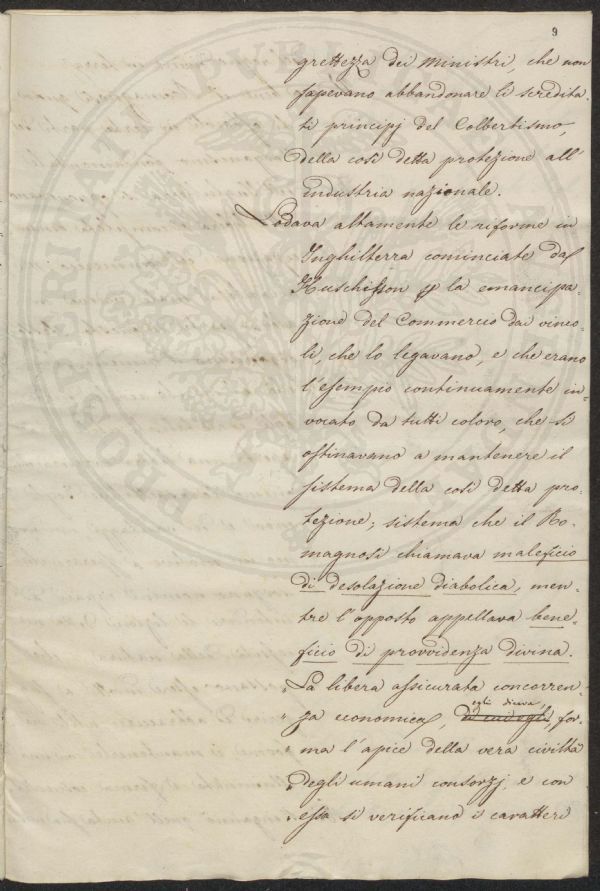 9
grettezza dei ministri, che non
sapevano abbandonare li scredita
ti principj del Colbertismo,
della così detta protezione all'
industria nazionale.
Lodava altamente le riforme in
Inghilterra cominciate dal
Huschisson p la emancipa=
zione del Commercio dai vinco=
li, che lo legavano, e che erano
l'esempio continuamente in=
vocato da tutti coloro, che si
ostinavano a mantenere il
sistema della così detta pro=
tezione; sistema che il Ro=
magnosi chiamava maleficio
di desolazione diabolica, men=
tre l'opposto appellava bene=
ficio di provvidenza divina.
"La libera assicurata concorren=
egli diceva,
" za economica, di cui egli, for=
" ma l'apice della vera civiltà
" degli umani consorzj, e con
" essa si verificano i caratteri
PROSPERITATI PUBLICAE